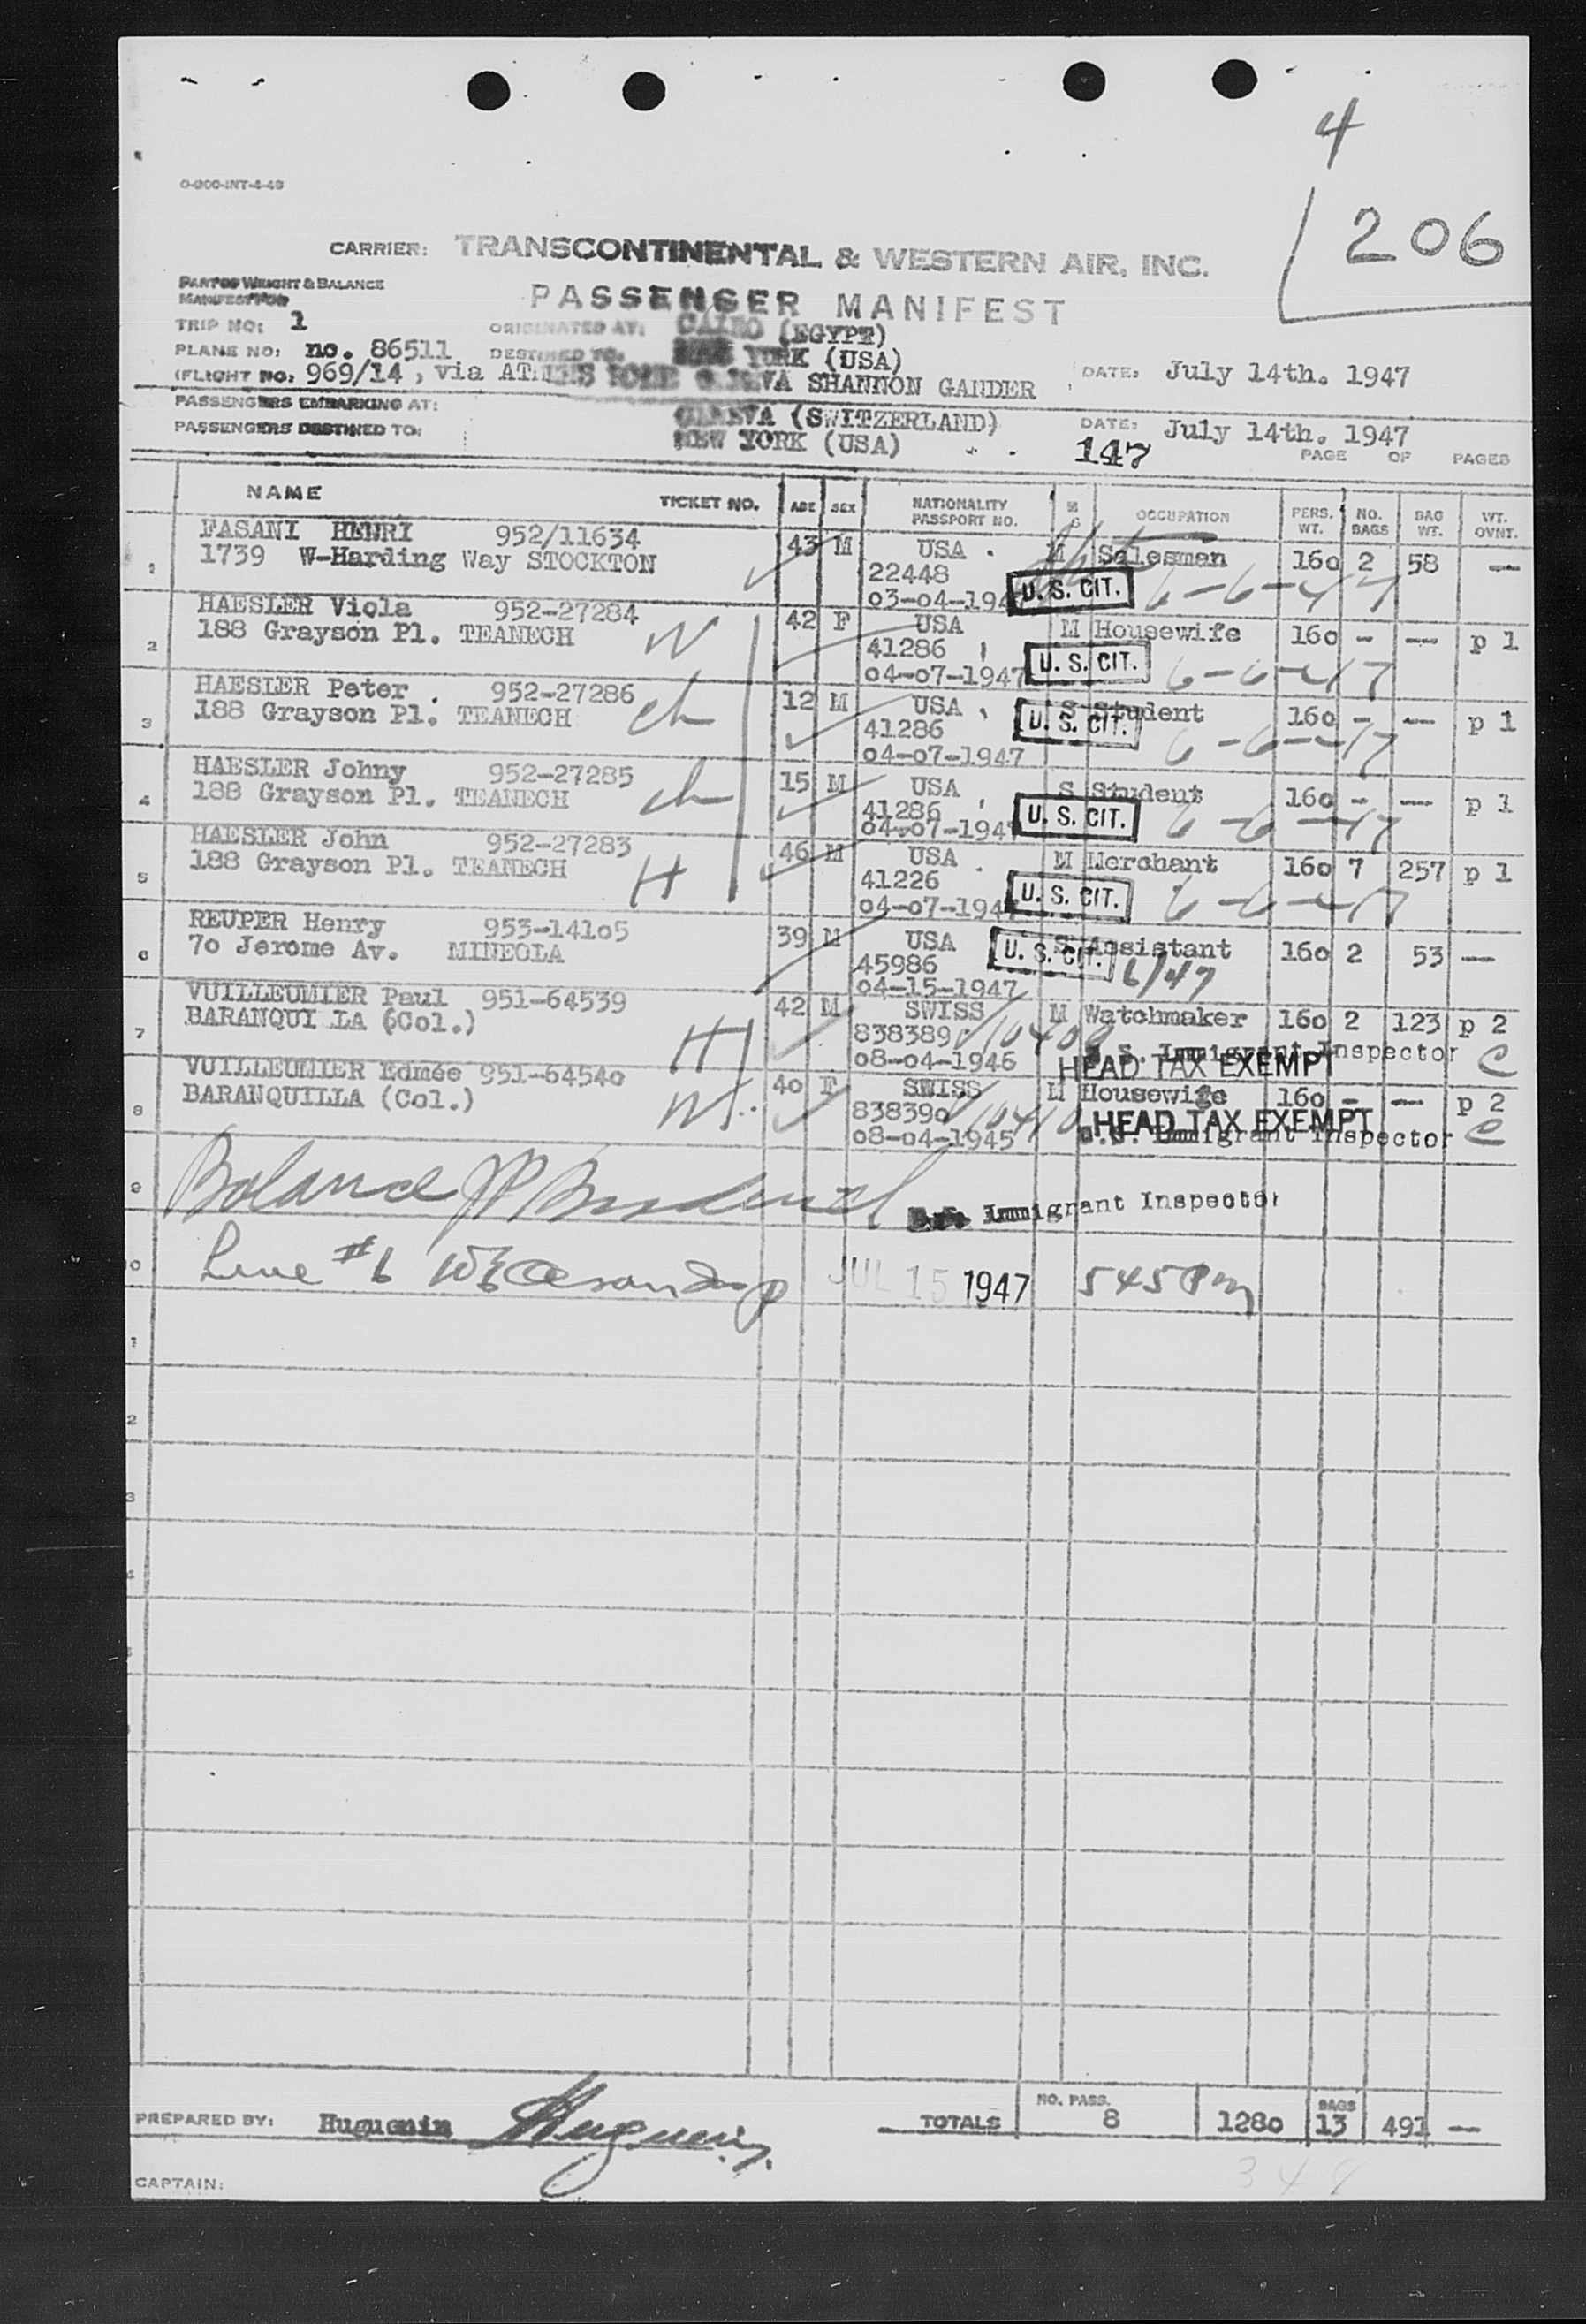 4
206
O-300-INT-4-46
CARRIER: TRANSCONTINENTAL & WESTERN AIR, INC.
PART OF WEIGHT & BALANCE
MANIFEST FOR
PASSENGER MANIFEST
TRIP NO: 1 ORIGINATED AT: CAIRO (EGYPT)
PLANE NO: no. 86511 DESTINED TO: NEW YORK (USA)
(FLIGHT NO: 969/14, via ATHENS ROME GENEVA SHANNON GANDER DATE: July 14th. 1947
PASSENGERS EMBARKING AT: GENEVA (SWITZERLAND) DATE: July 14th. 1947
PASSENGERS DESTINED TO: NEW YORK (USA) 147 PAGE OF PAGES
NAME TICKET NO. AGE SEX NATIONALITY PASSPORT NO. M S OCCUPATION PERS. WT. NO. BAGS BAG WT. WT. OVNT.
1 FASANI HENRI 952/11634 43 M USA . M Salesman 160 2 58 —
1739 W-Harding Way STOCKTON 22448
03-04-194 U. S. CIT. 6-6-47
2 HAESLER Viola 952-27284 42 F USA M Housewife 160 - — p 1
188 Grayson Pl. TEANECH W 41286
04-07-1947 U. S. CIT. 6-6-47
3 HAESLER Peter . 952-27286 12 M USA S Student 160 - — p 1
188 Grayson Pl. TEANECH ch 41286 U. S. CIT.
04-07-1947 6-6-47
4 HAESLER Johny 952-27285 15 M USA S Student 160 - — p 1
188 Grayson Pl. TEANECH ch 41286
04-07-194 U. S. CIT. 6-6-47
5 HAESLER John 952-27283 46 M USA . M Merchant 160 7 257 p 1
188 Grayson Pl. TEANECH H 41226
04-07-194 U. S. CIT. 6-6-47
6 REUPER Henry 953-14105 39 M USA S Assistant 160 2 53 —
70 Jerome Av. MINEOLA 45986 U. S. CIT. 6/47
04-15-1947
7 VUILLEUMIER Paul 951-64539 42 M SWISS M Watchmaker 160 2 123 p 2
BARANQUI LA (Col.) H 838389 10409 U. S. Immigrant Inspector C
08-04-1946 HEAD TAX EXEMPT
8 VUILLEUMIER Edmée 951-64540 40 F SWISS M Housewife 160 - — p 2
BARANQUILLA (Col.) W 838390 10410 HEAD TAX EXEMPT
08-04-1945 U.S. Immigrant Inspector C
9 Balance
U.S. Immigrant Inspector
Line #6 JUL 15 1947 545 Pm
PREPARED BY: Huguenin Huguenin
TOTALS NO. PASS. 8 1280 BAGS 13 491 —
CAPTAIN:
349